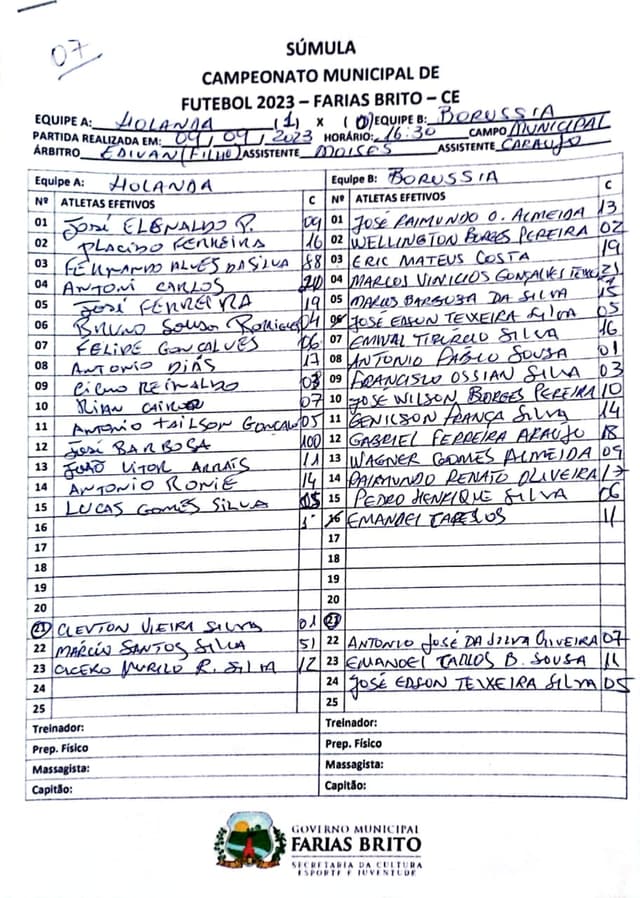 07
SÚMULA
CAMPEONATO MUNICIPAL DE
FUTEBOL 2023 – FARIAS BRITO – CE
EQUIPE A: HOLANDA (1) X (0) EQUIPE B: BORUSSIA
PARTIDA REALIZADA EM: 09/09/2023 HORÁRIO: 16:30 CAMPO MUNICIPAL
ÁRBITRO EDIVAN (FILHO) ASSISTENTE MOISES ASSISTENTE CARAUJO
Equipe A: HOLANDA
Nº ATLETAS EFETIVOS C
01 JOSÉ ELENALDO P. 09
02 PLACIDO FERREIRA 16
03 FERNANDO ALVES DA SILVA 88
04 ANTONI CARLOS
05 JOSÉ FERREIRA 19
06 BRUNO SOUSA 04
07 FELIPE GONÇALVES 06
08 ANTONIO DIAS 17
09 CICMO REINALDO
10 RIAN 07
11 ANTONIO TAILSON 05
12 JOSÉ BARBOSA 100
13 JOÃO VITOR ARRAIS 11
14 ANTONIO RONIE 14
15 LUCAS GOMES SILVA
16
17
18
19
20
21 CLEVTON VIEIRA SILVA 01
22 MÁRCIO SANTOS SILVA 51
23 CICERO MURILO R. SILVA 12
24
25
Treinador:
Prep. Físico
Massagista:
Capitão:
Equipe B: BORUSSIA
Nº ATLETAS EFETIVOS C
01 JOSÉ RAIMUNDO O. ALMEIDA 13
02 WELLINGTON BORGES PEREIRA 02
03 ERIC MATEUS COSTA 19
04 MARCOS VINICIOS GONÇALVES 21
05 MARCOS BARBOSA DA SILVA 15
06 JOSÉ EDSON TEXEIRA SILVA 05
07 EMIVAL TIBÚRCIO SILVA 16
08 ANTONIO PABLO SOUSA 01
09 FRANCISCO OSSIAN SILVA 03
10 JOSE WILSON BORGES PEREIRA 10
11 GENILSON FRANÇA SILVA 14
12 GABRIEL FERREIRA ARAUJO 18
13 WAGNER GOMES ALMEIDA 09
14 RAIMUNDO RENATO OLIVEIRA 17
15 PEDRO HENRIQUE SILVA 06
16 EMANOEL 11
17
18
19
20
21
22 ANTONIO JOSÉ DA SILVA OLIVEIRA 07
23 EMANOEL TADLOS B. SOUSA 11
24 JOSÉ EDSON TEIXEIRA SILVA 05
25
Treinador:
Prep. Físico
Massagista:
Capitão:
GOVERNO MUNICIPAL
FARIAS BRITO
SECRETARIA DA CULTURA
ESPORTE E JUVENTUDE